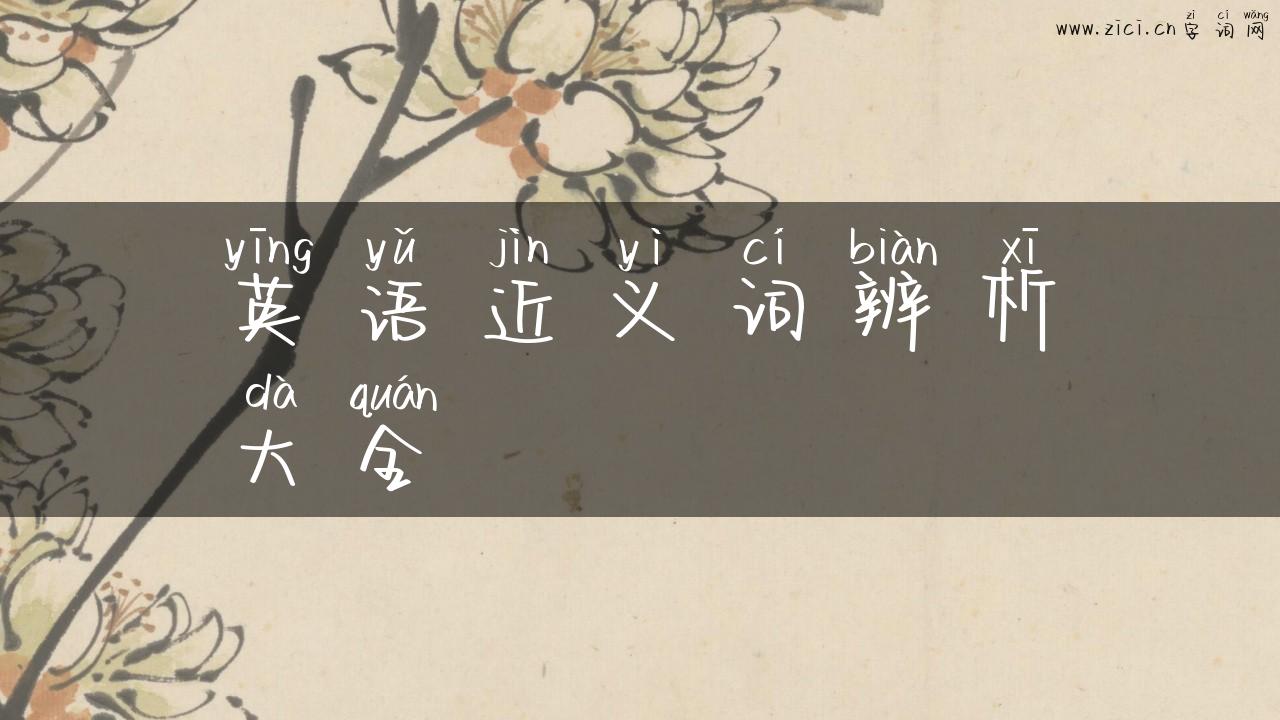 zì cí wǎng
www.zici.cn 字词网
yīng yǔ jìn yì cí biàn xī
英语近义词辨析
dà quán
大全